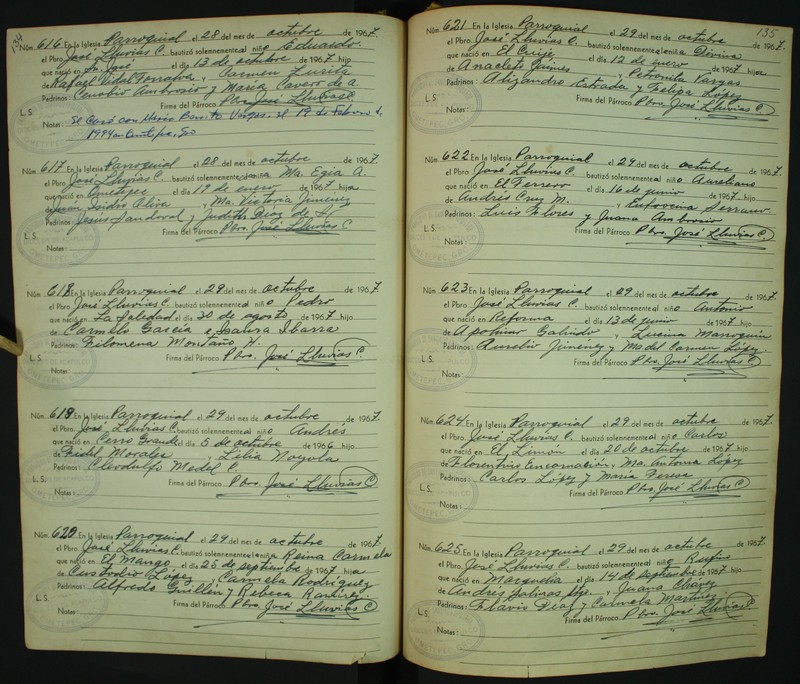 134
Núm. 616 En la Iglesia Parroquial el 28 del mes de octubre de 1967.
el Pbro. José Lluvias C. bautizó solemnemente al niño Eduardo.
que nació en Sn. José el día 13 de octubre de 1967 hijo
de Rafael Vidal y Carmen
Padrinos: Ambrosio y María Cavero de A.
L. S. Firma del Párroco Pbro. José Lluvias C.
Notas: Se casó con María Benito Vargas, el 19 de Febrero d.
1994
Núm. 617 En la Iglesia Parroquial el 28 del mes de octubre de 1967.
el Pbro. José Lluvias C. bautizó solemnemente a la niña Ma. A.
que nació en Ometepec el día 19 de enero de 1967 hija
de Juan Isidro Oliva y Ma. Victoria Jiménez
Padrinos: Jesús Sandoval y Judith Díaz de
L. S. Firma del Párroco Pbro. José Lluvias C
Notas:
Núm. 618 En la Iglesia Parroquial el 29 del mes de octubre de 1967.
el Pbro. José Lluvias C. bautizó solemnemente al niño Pedro
que nació en La Soledad el día 30 de agosto de 1967 hijo
de Carmelo García e Isaura Ibarra
Padrinos: Filomena Montaño H.
L. S. Firma del Párroco Pbro. José Lluvias C.
Notas:
Núm. 619 En la Iglesia Parroquial el 29 del mes de octubre de 1967.
el Pbro. José Lluvias C. bautizó solemnemente al niño Andrés
que nació en Cerro Grande el día 5 de octubre de 1966 hijo
de Fidel Morales y Lilia Noyola
Padrinos: Clerdulfo Medel C.
L. S. Firma del Párroco Pbro. José Lluvias C
Notas:
Núm. 620 En la Iglesia Parroquial el 29 del mes de octubre de 1967.
el Pbro. José Lluvias C. bautizó solemnemente a la niña Reina Carmela
que nació en El Mango el día 25 de septiembre de 1967 hija
de Custodio López y Carmela Rodríguez
Padrinos: Alfredo Guillen y Rebeca Ramírez
L. S. Firma del Párroco Pbro. José Lluvias C
Notas:
135
Núm. 621 En la Iglesia Parroquial el 29 del mes de octubre de 1967.
el Pbro. José Lluvias C. bautizó solemnemente a la niña Divina
que nació en El el día 12 de enero de 1967 hija
de Anacleto y Petronila Vargas
Padrinos: Alejandro Estrada y Felipa López
L. S. Firma del Párroco Pbro. José Lluvias C.
Notas:
Núm. 622 En la Iglesia Parroquial el 29 del mes de octubre de 1967.
el Pbro. José Lluvias C. bautizó solemnemente al niño Aureliano
que nació en El Terrero el día 16 de junio de 1967 hijo
de Andrés Cruz M. y Eufrosina Serrano
Padrinos: Luis Flores y Juana Ambrosio
L. S. Firma del Párroco Pbro. José Lluvias C.
Notas:
Núm. 623 En la Iglesia Parroquial el 29 del mes de octubre de 1967.
el Pbro. José Lluvias C. bautizó solemnemente al niño Antonio
que nació en Reforma el día 13 de junio de 1967 hijo
de Apolinar Galindo y Lucina Marroquín
Padrinos: Aurelio Jiménez y Ma del Carmen López
L. S. Firma del Párroco Pbro. José Lluvias C
Notas:
Núm. 624 En la Iglesia Parroquial el 29 del mes de octubre de 1967.
el Pbro. José Lluvias C. bautizó solemnemente al niño Carlos
que nació en El Limón el día 20 de octubre de 1967 hijo
de Florentino Encarnación y Ma. Antonia López
Padrinos: Carlos López y María Teresa
L. S. Firma del Párroco Pbro. José Lluvias C
Notas:
Núm. 625 En la Iglesia Parroquial el 29 del mes de octubre de 1967.
el Pbro. José Lluvias C. bautizó solemnemente al niño Rufino
que nació en Marquelia el día 14 de septiembre de 1967 hijo
de Andrés Salinas y Juana Chávez
Padrinos: Flavio Díaz y Carmela Martínez
L. S. Firma del Párroco Pbro. José Lluvias C
Notas: